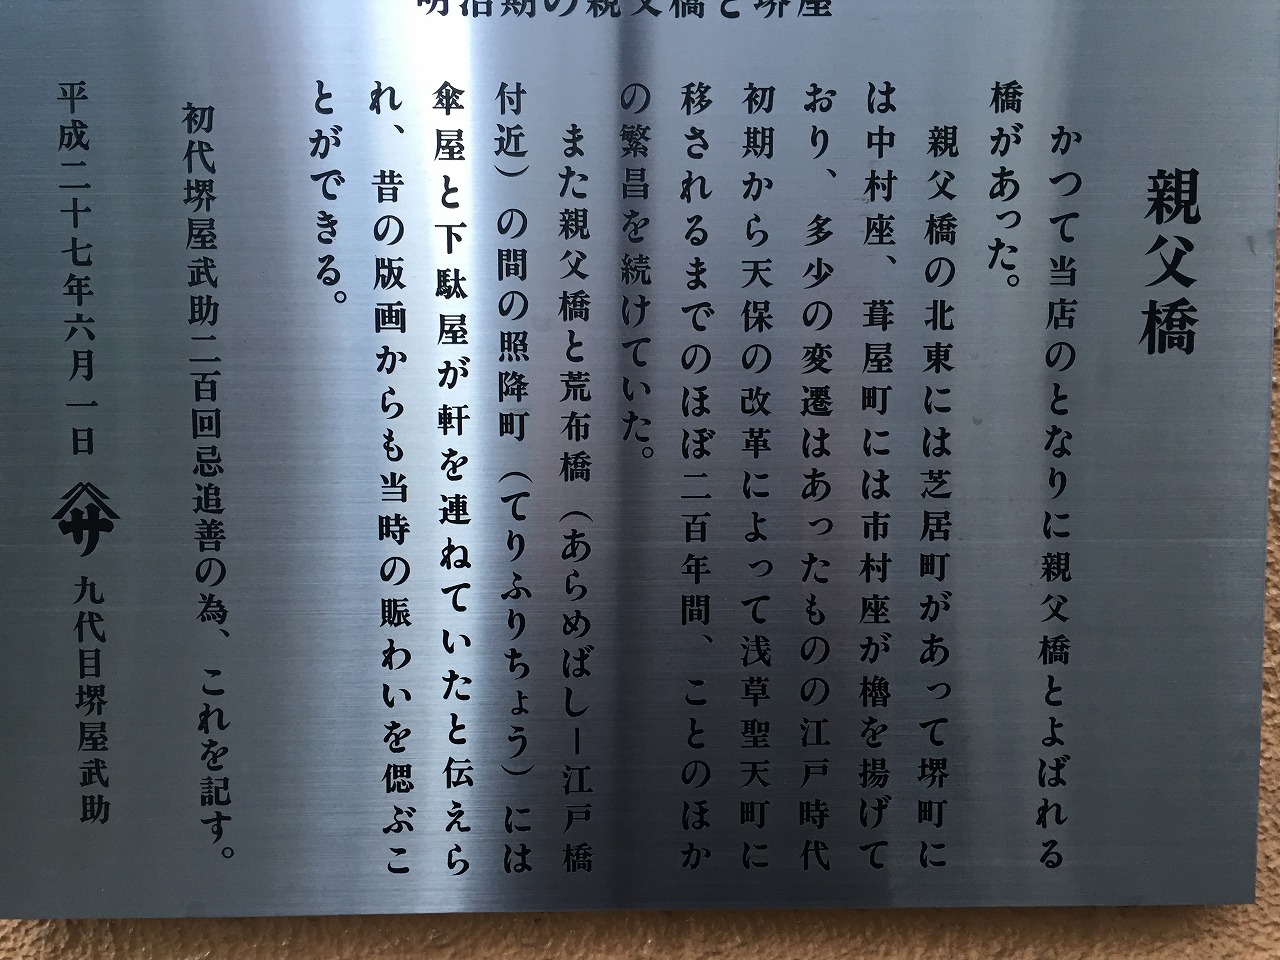 明治期の親父橋と堺屋
親父橋
かつて当店のとなりに親父橋とよばれる
橋があった。
親父橋の北東には芝居町があって堺町に
は中村座、葺屋町には市村座が櫓を揚げて
おり、多少の変遷はあったものの江戸時代
初期から天保の改革によって浅草聖天町に
移されるまでのほぼ二百年間、ことのほか
の繁昌を続けていた。
また親父橋と荒布橋（あらめばし―江戸橋
付近）の間の照降町（てりふりちょう）には
傘屋と下駄屋が軒を連ねていたと伝えら
れ、昔の版画からも当時の賑わいを偲ぶこ
とができる。
初代堺屋武助二百回忌追善の為、これを記す。
平成二十七年六月一日 サ 九代目堺屋武助